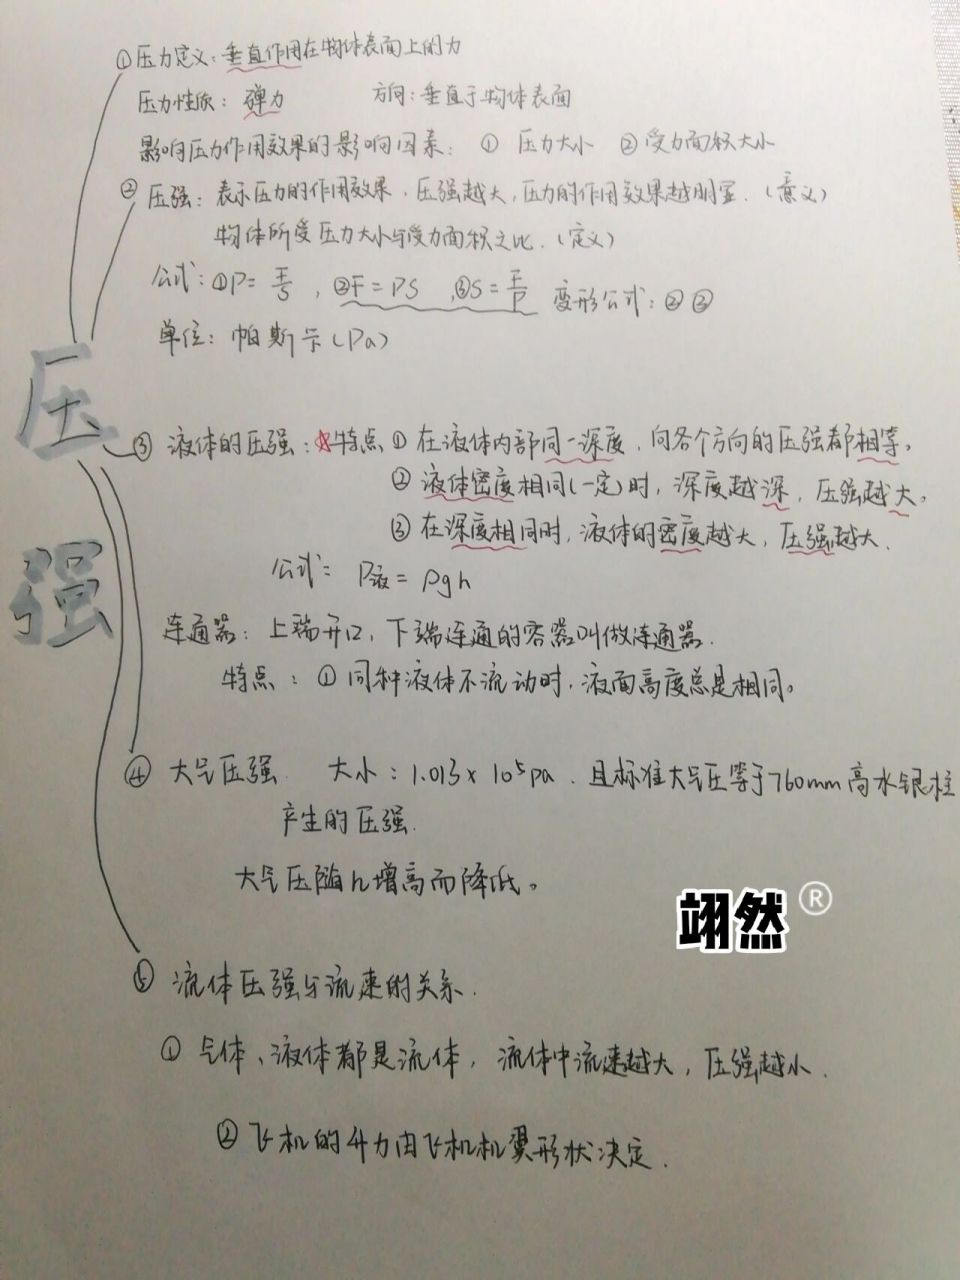 压强
①压力定义：垂直作用在物体表面上的力
压力性质：弹力 方向：垂直于物体表面
影响压力作用效果的影响因素：① 压力大小 ②受力面积大小
② 压强：表示压力的作用效果，压强越大，压力的作用效果越明显.（意义）
物体所受压力大小与受力面积之比.（定义）
公式：①P=F/S，②F=PS，③S=F/P 变形公式：②③
单位：帕斯卡(Pa)
③ 液体的压强：☆特点 ① 在液体内部同一深度，向各个方向的压强都相等。
② 液体密度相同(一定)时，深度越深，压强越大。
③ 在深度相同时，液体的密度越大，压强越大.
公式：P液=ρgh
连通器：上端开口，下端连通的容器叫做连通器.
特点：①同种液体不流动时，液面高度总是相同。
④ 大气压强 大小：1.013×10⁵pa.且标准大气压等于760mm高水银柱
产生的压强.
大气压随h增高而降低。
翊然®
⑤ 流体压强与流速的关系.
① 气体、液体都是流体，流体中流速越大，压强越小.
② 飞机的升力由飞机机翼形状决定.